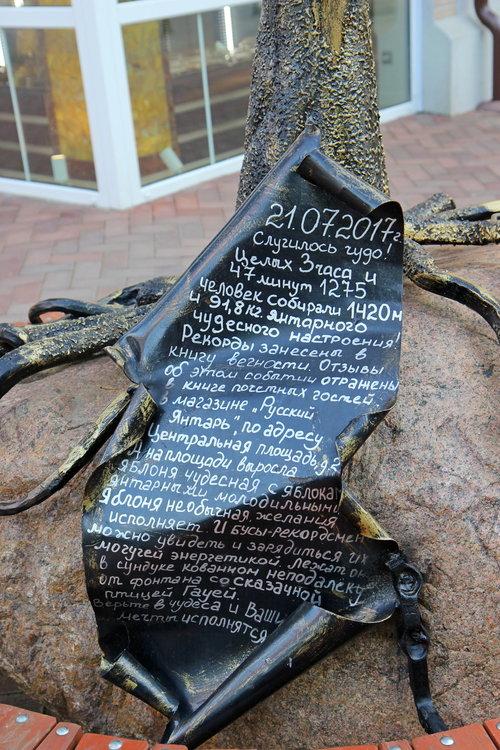 21.07.2017г.
Случилось чудо!
Целых 3 часа и
47 минут 1275
человек собирали 1420м
и 91,8 кг. янтарного
чудесного настроения!
Рекорды занесены в
книгу вечности. Отзывы
об этом событии отражены
в книге почётных гостей,
в магазине „Русский
Янтарь", по адресу
Центральная площадь,
А на площади выросла
яблоня чудесная с яблоками
янтарными молодильными
Яблоня необычная, желания
исполняет. И бусы-рекордсмены
можно увидеть и зарядиться их
могучей энергетикой. Лежат он
в сундуке кованном неподалёку
от фонтана со сказочной
птицей Гауей.
Верьте в чудеса и Ваши
мечты исполнятся